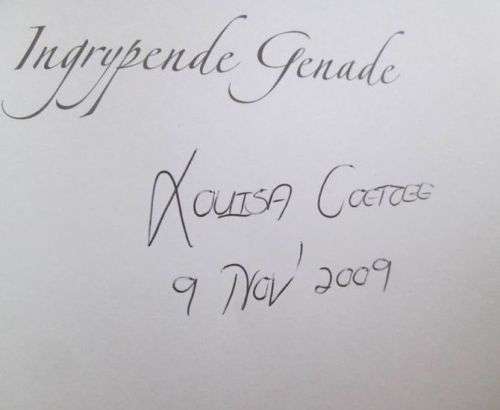 Ingrypende Genade
Louisa Coetzee
9 Nov' 2009